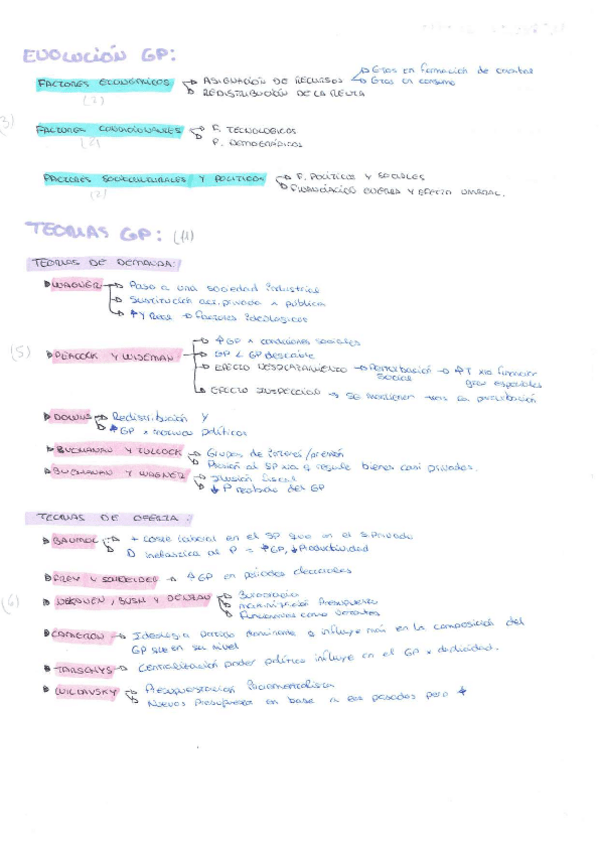 EVOLUCIÓN GP:
FACTORES ECONÓMICOS → ASIGNACIÓN DE RECURSOS → Gtos en formación de
→ Gtos en consumo
(2) → REDISTRIBUCIÓN DE LA RENTA
(3)
FACTORES CONDICIONANTES → F. TECNOLÓGICOS
(2) F. DEMOGRÁFICOS
FACTORES SOCIOCULTURALES Y POLÍTICOS → F. POLÍTICOS Y SOCIALES
(2) → FINANCIACIÓN GUERRA Y EFECTO UMBRAL.
TEORIAS GP: (11)
TEORIAS DE DEMANDA:
WAGNER → Paso a una sociedad industrial
→ Sustitución act. privada x pública
→ ↑Y → factores ideológicos
(5)
PEACOCK Y WISEMAN → ↑GP x condiciones sociales
→ GP < GP deseable
→ EFECTO DESPLAZAMIENTO → Perturbación social → ↑T xa financiar
gtos especiales
→ EFECTO INSPECCIÓN → se mantienen tras la perturbación
DOWNS → Redistribución Y
→ ↑GP x motivos políticos
BUCHANAN Y TULLOCK → Grupos de interés/presión
→ Presión al SP xa q regule bienes casi privados.
BUCHANAN Y WAGNER → Ilusión fiscal
→ ↓ P recibido del GP
TEORIAS DE OFERTA:
BAUMOL → + coste laboral en el SP que en el S.Privado
D inelástica al P = ↑GP, ↓Productividad
FREY Y SCHNEIDER → ↑GP en periodos electorales
(6)
NISKANEN, BUSH Y DENZAU → Burocracia
→ maximización Presupuesto
→ Funcionarios como votantes
CAMERON → Ideología partido dominante q influye más en la composición del
GP que en su nivel
TARSCHYS → Centralización poder político influye en el GP x
WILDAVSKY → Presupuestación Incrementalista
→ Nuevos Presupuestos en base a los pasados pero ↑